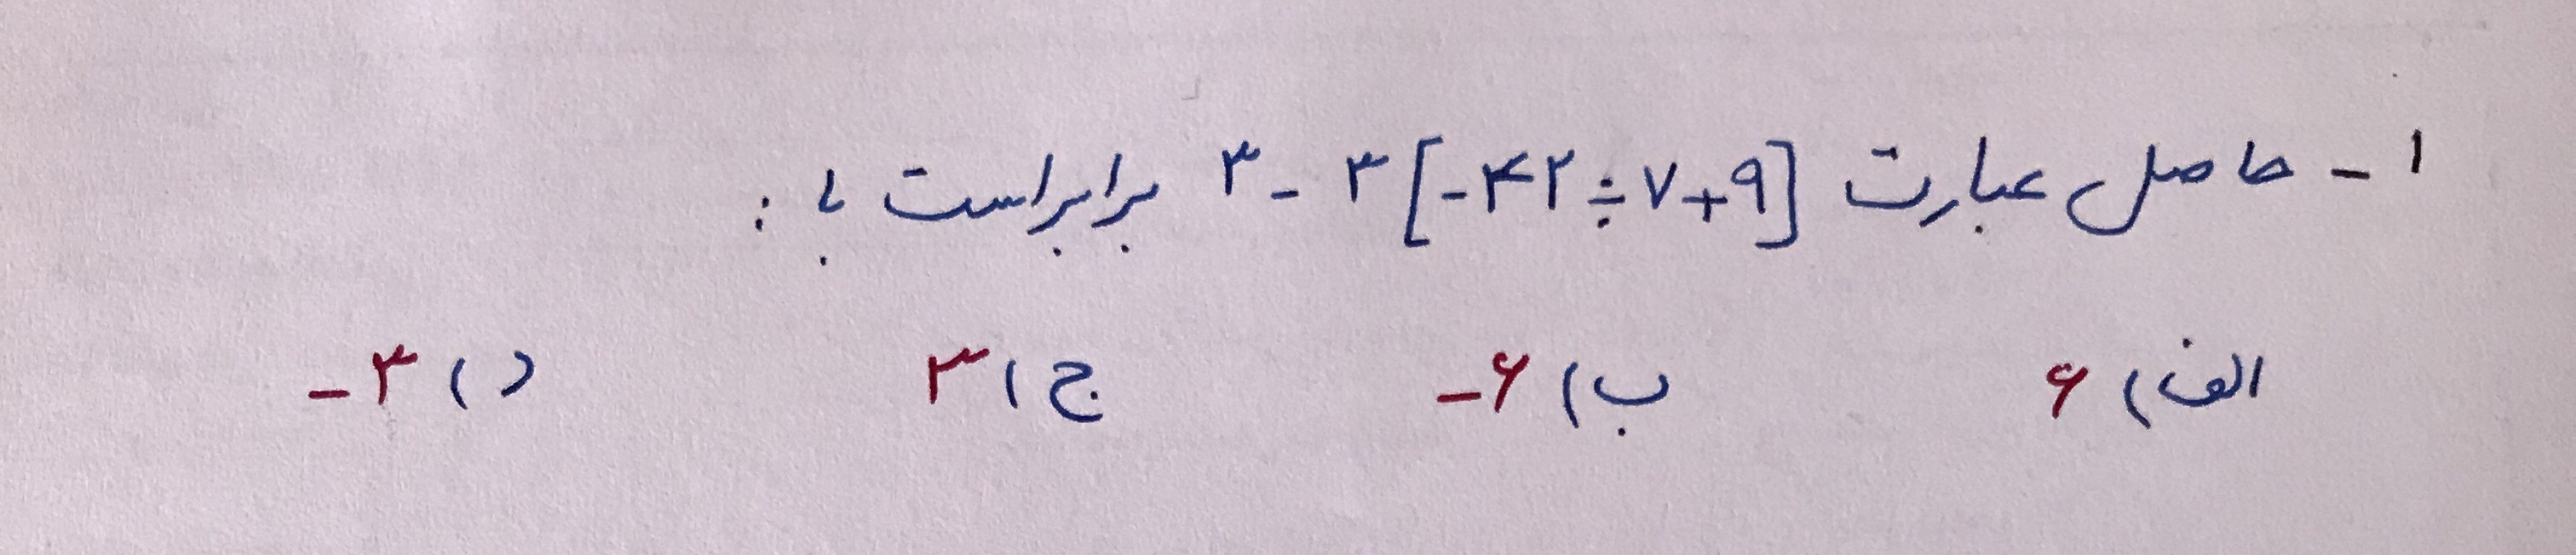 ۱ - حاصل عبارت ۳ - ۳[-۴۲÷۷+۹] برابر است با :
الف) ۶ ب) -۶ ج) ۳ د) -۳